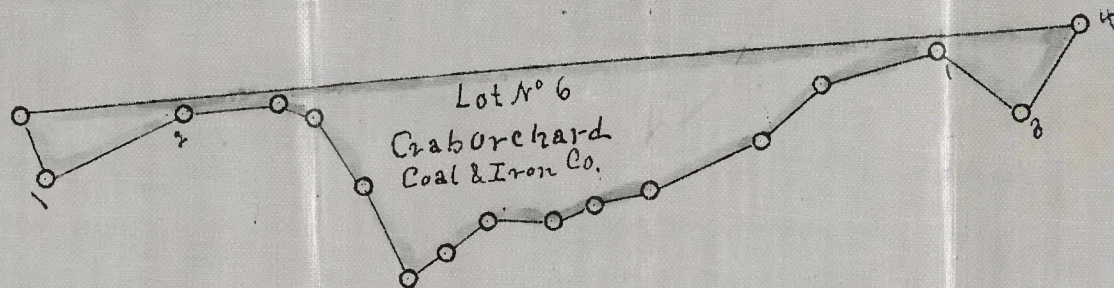 Lot No 6
Craborchard
Coal & Iron Co.
1
2
1
3
4